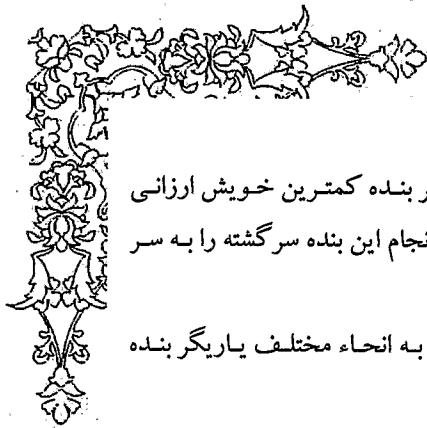 ر بنده کمترین خویش ارزانی
نجام این بنده سرگشته را به سر
به انحاء مختلف یاریگر بنده